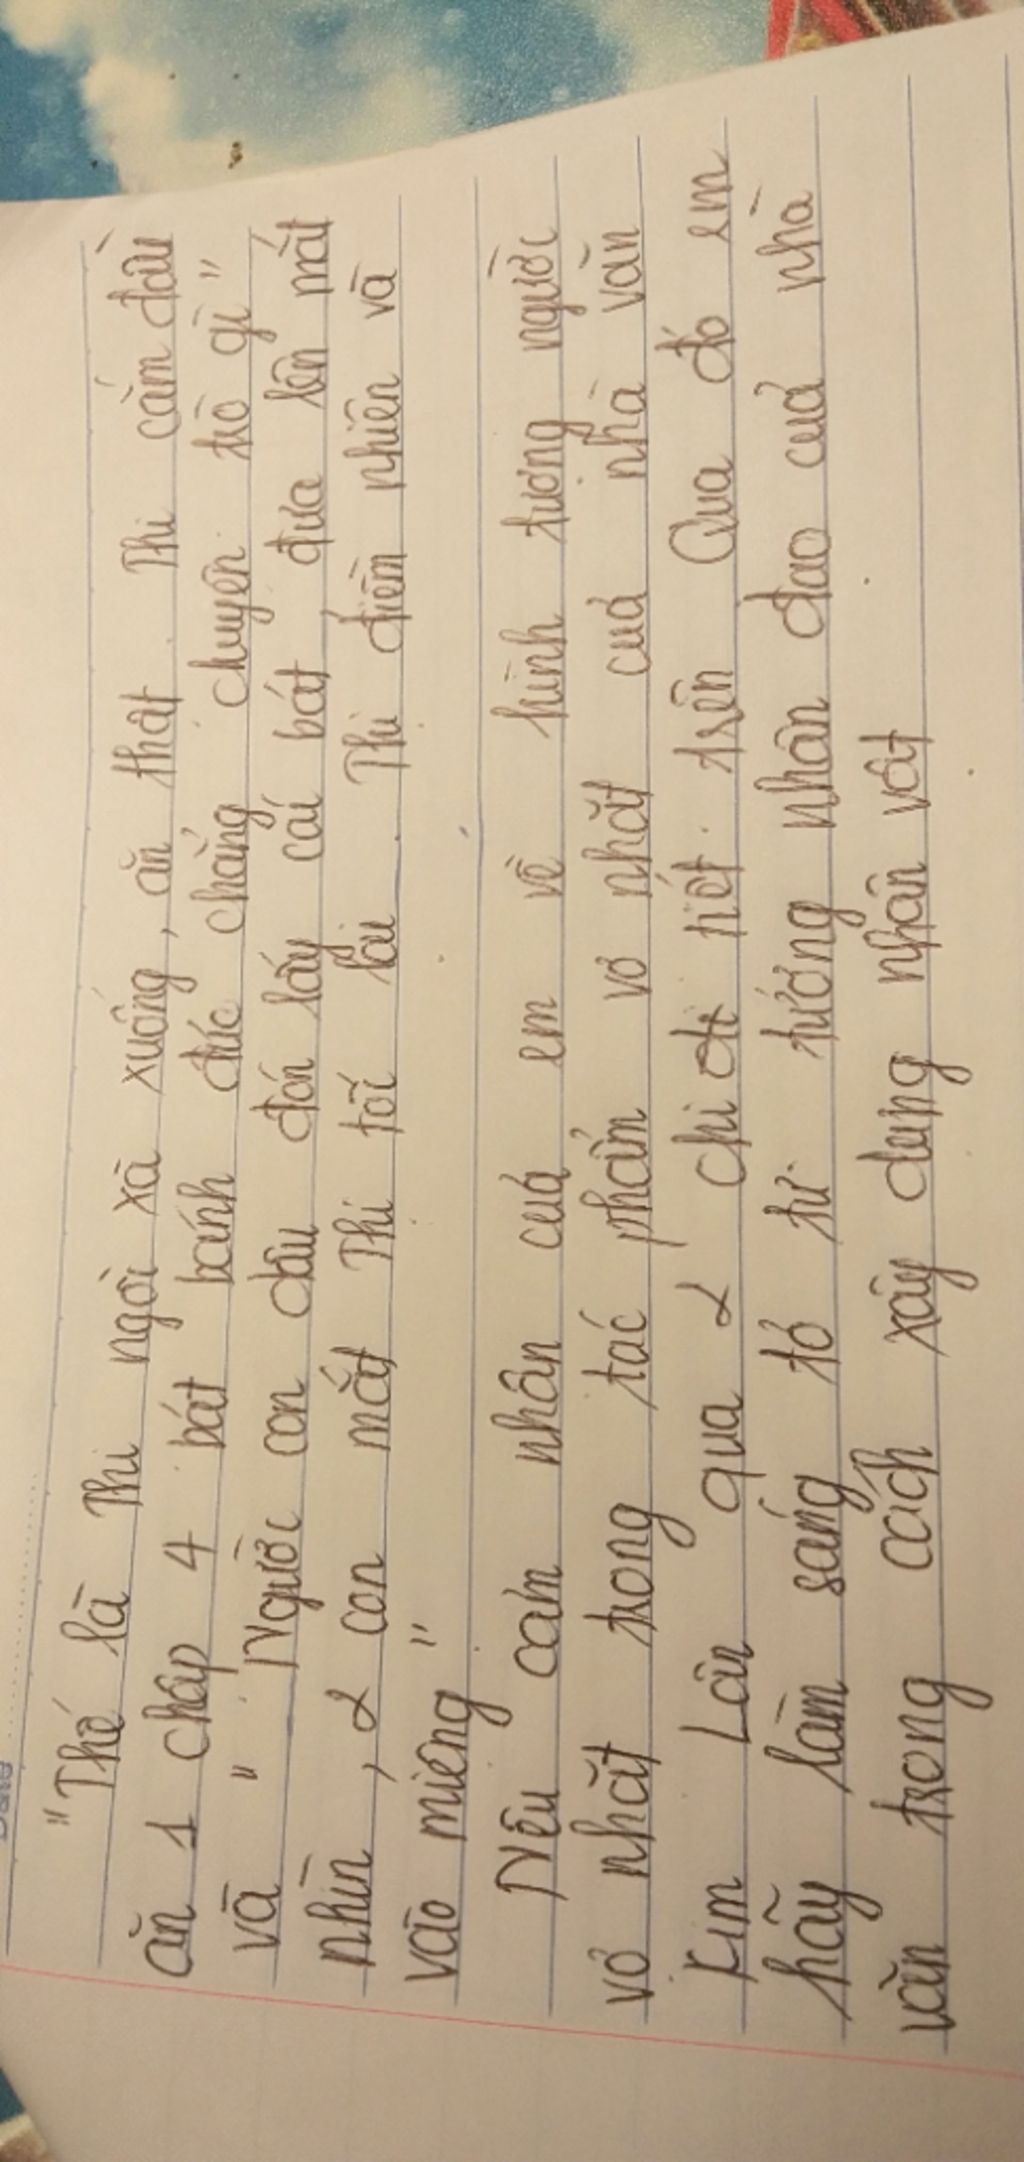 "Thế là Thị ngồi xà xuống, ăn thật. Thị cắm đầu
ăn 1 chập 4 bát bánh đúc chẳng chuyện trò gì"
và " Người con dâu đón lấy cái bát đưa lên mắt
nhìn, 2 con mắt Thị tối lại. Thị điềm nhiên và
vào miệng"
Nêu cảm nhận của em về hình tượng người
vợ nhặt trong tác phẩm vợ nhặt của nhà văn
Kim Lân qua 2 chi tiết trên Qua đó em
hãy làm sáng tỏ tư tưởng nhân đạo của nhà
văn trong cách xây dựng nhân vật